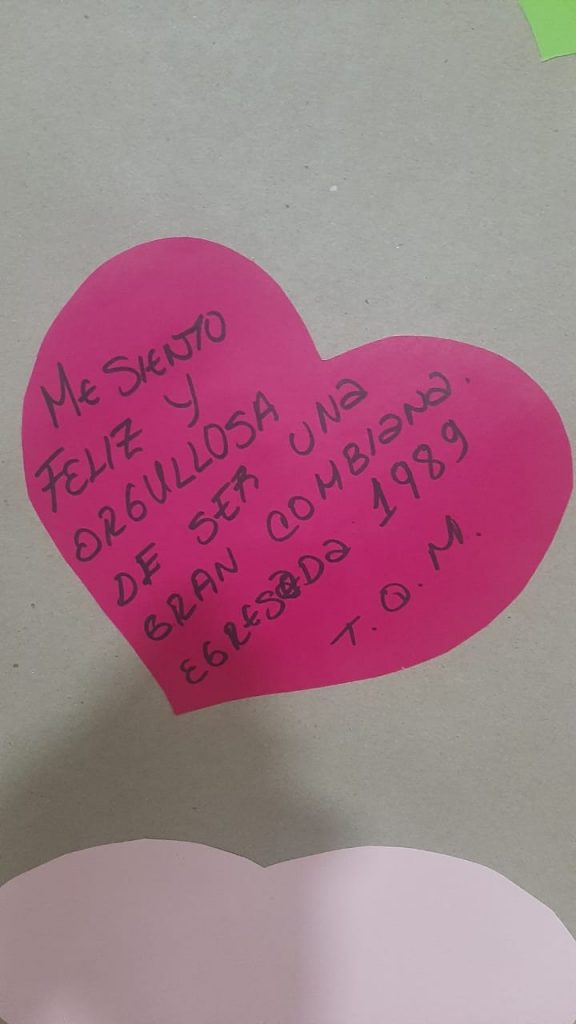 Me SIENTO
FELIZ Y
ORGULLOSA
DE SER UNa
GRAN COMBIaNa.
EGRESaDa 1989
T.Q.M.